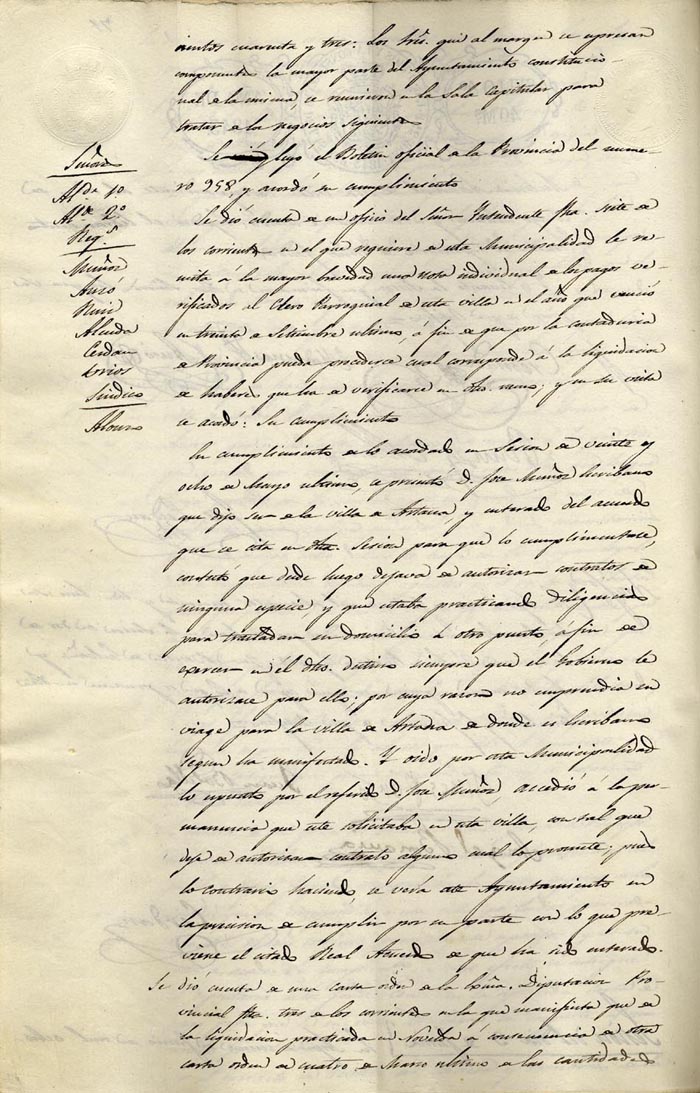 Señores
Alde 1º
Alde 2º
Regs
Muñoz
Amo
Ruiz
Cerdan
Sindico
Alonso
cientos cuarenta y tres: Los Sres. que al margen se espresan
componentes la mayor parte del Ayuntamiento constitucio-
nal de la misma, se reunieron en la Sala Capitular para
tratar de los negocios siguientes
Se leyó el Boletin oficial de la Provincia del nume-
ro 958, y acordó su cumplimiento
Se dió cuenta de un oficio del Señor Yntendente fha. siete de
los corrientes en el que requiere de esta Municipalidad le re-
mita á la mayor brevedad una nota individual de los pagos ve-
rificados al Clero Parroquial de esta villa en el año que venció
en treinta de Setiembre ultimo, á fin de que por la contaduria
de Provincia pueda procederse cual corresponde á la liquidacion
de haberes que ha de verificarse en dho. ramo; y en su vista
se acordó: Su cumplimiento
En cumplimiento de lo acordado en Sesion de veinte y
ocho de Mayo ultimo, se presentó D. Jose Muñoz Escribano
que dijo ser de la villa de Artana, y enterado del acuerdo
que se cita en dha. Sesion para que lo cumplimentase,
contestó que desde luego dejava de autorizar contratos de
ninguna especie, y que estaba practicando diligencias
para trasladar su domicilio á otro punto, á fin de
exercer en él dho. destino siempre que el Gobierno le
autorizase para ello; por cuya razon no emprendia su
viage para la villa de Artana de donde es Escribano
segun ha manifestado. Y oido por esta Municipalidad
lo espuesto por el referido D. Jose Muñoz, accedió á la per-
manencia que este solicitaba en esta villa, con tal que
deje de autorizar contrato alguno cual lo promete; pues
lo contrario haciendo, se vería este Ayuntamiento en
la precision de cumplir por su parte con lo que pre-
viene el citado Real Acuerdo de que ha sido enterado.
Se dió cuenta de una carta orden de la Exma. Diputacion Pro-
vincial fha. tres de los corrientes en la que manifiesta que de
la liquidacion practicada en Novelda á consecuencia de otra
carta orden de cuatro de Marzo ultimo de las cantidades